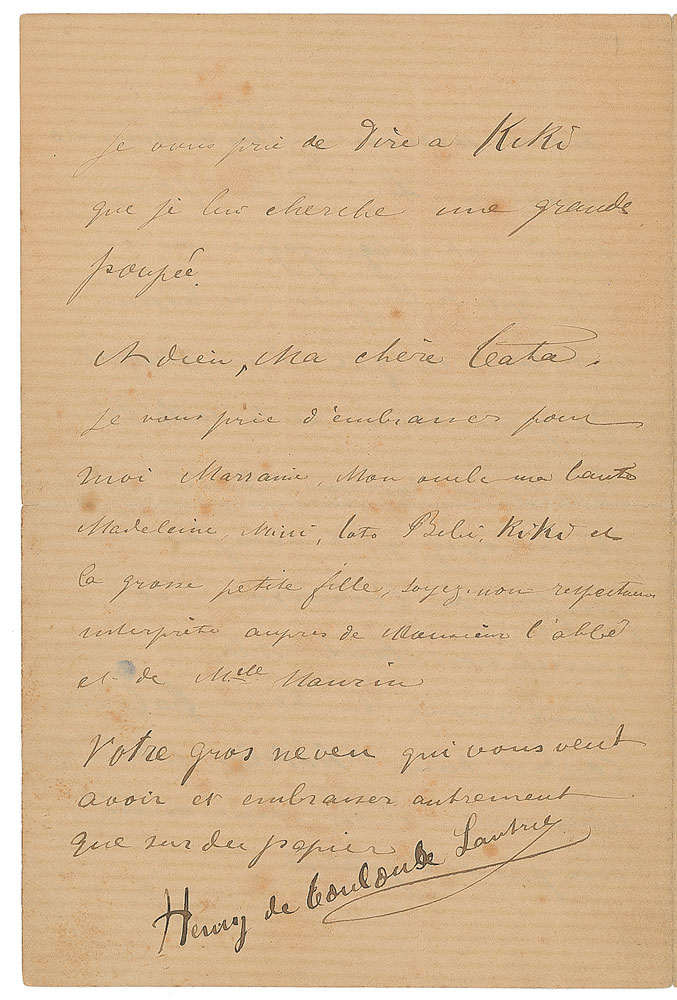 Je vous prie de dire a Kiki
que je lui cherche une grande
poupée.
Adieu, Ma chère tata.
Je vous prie d'embrasser pour
moi Marraine, Mon oncle ma tante
Madeleine, Mimi, loto Bébé, Kiki et
la grosse petite fille, soyez mon respectueux
interprète aupres de Monsieur l'abbé
et de Melle Maurin
Votre gros neveu qui vous veut
avoir et embrasser autrement
que sur du papier
Henry de Toulouse Lautrec